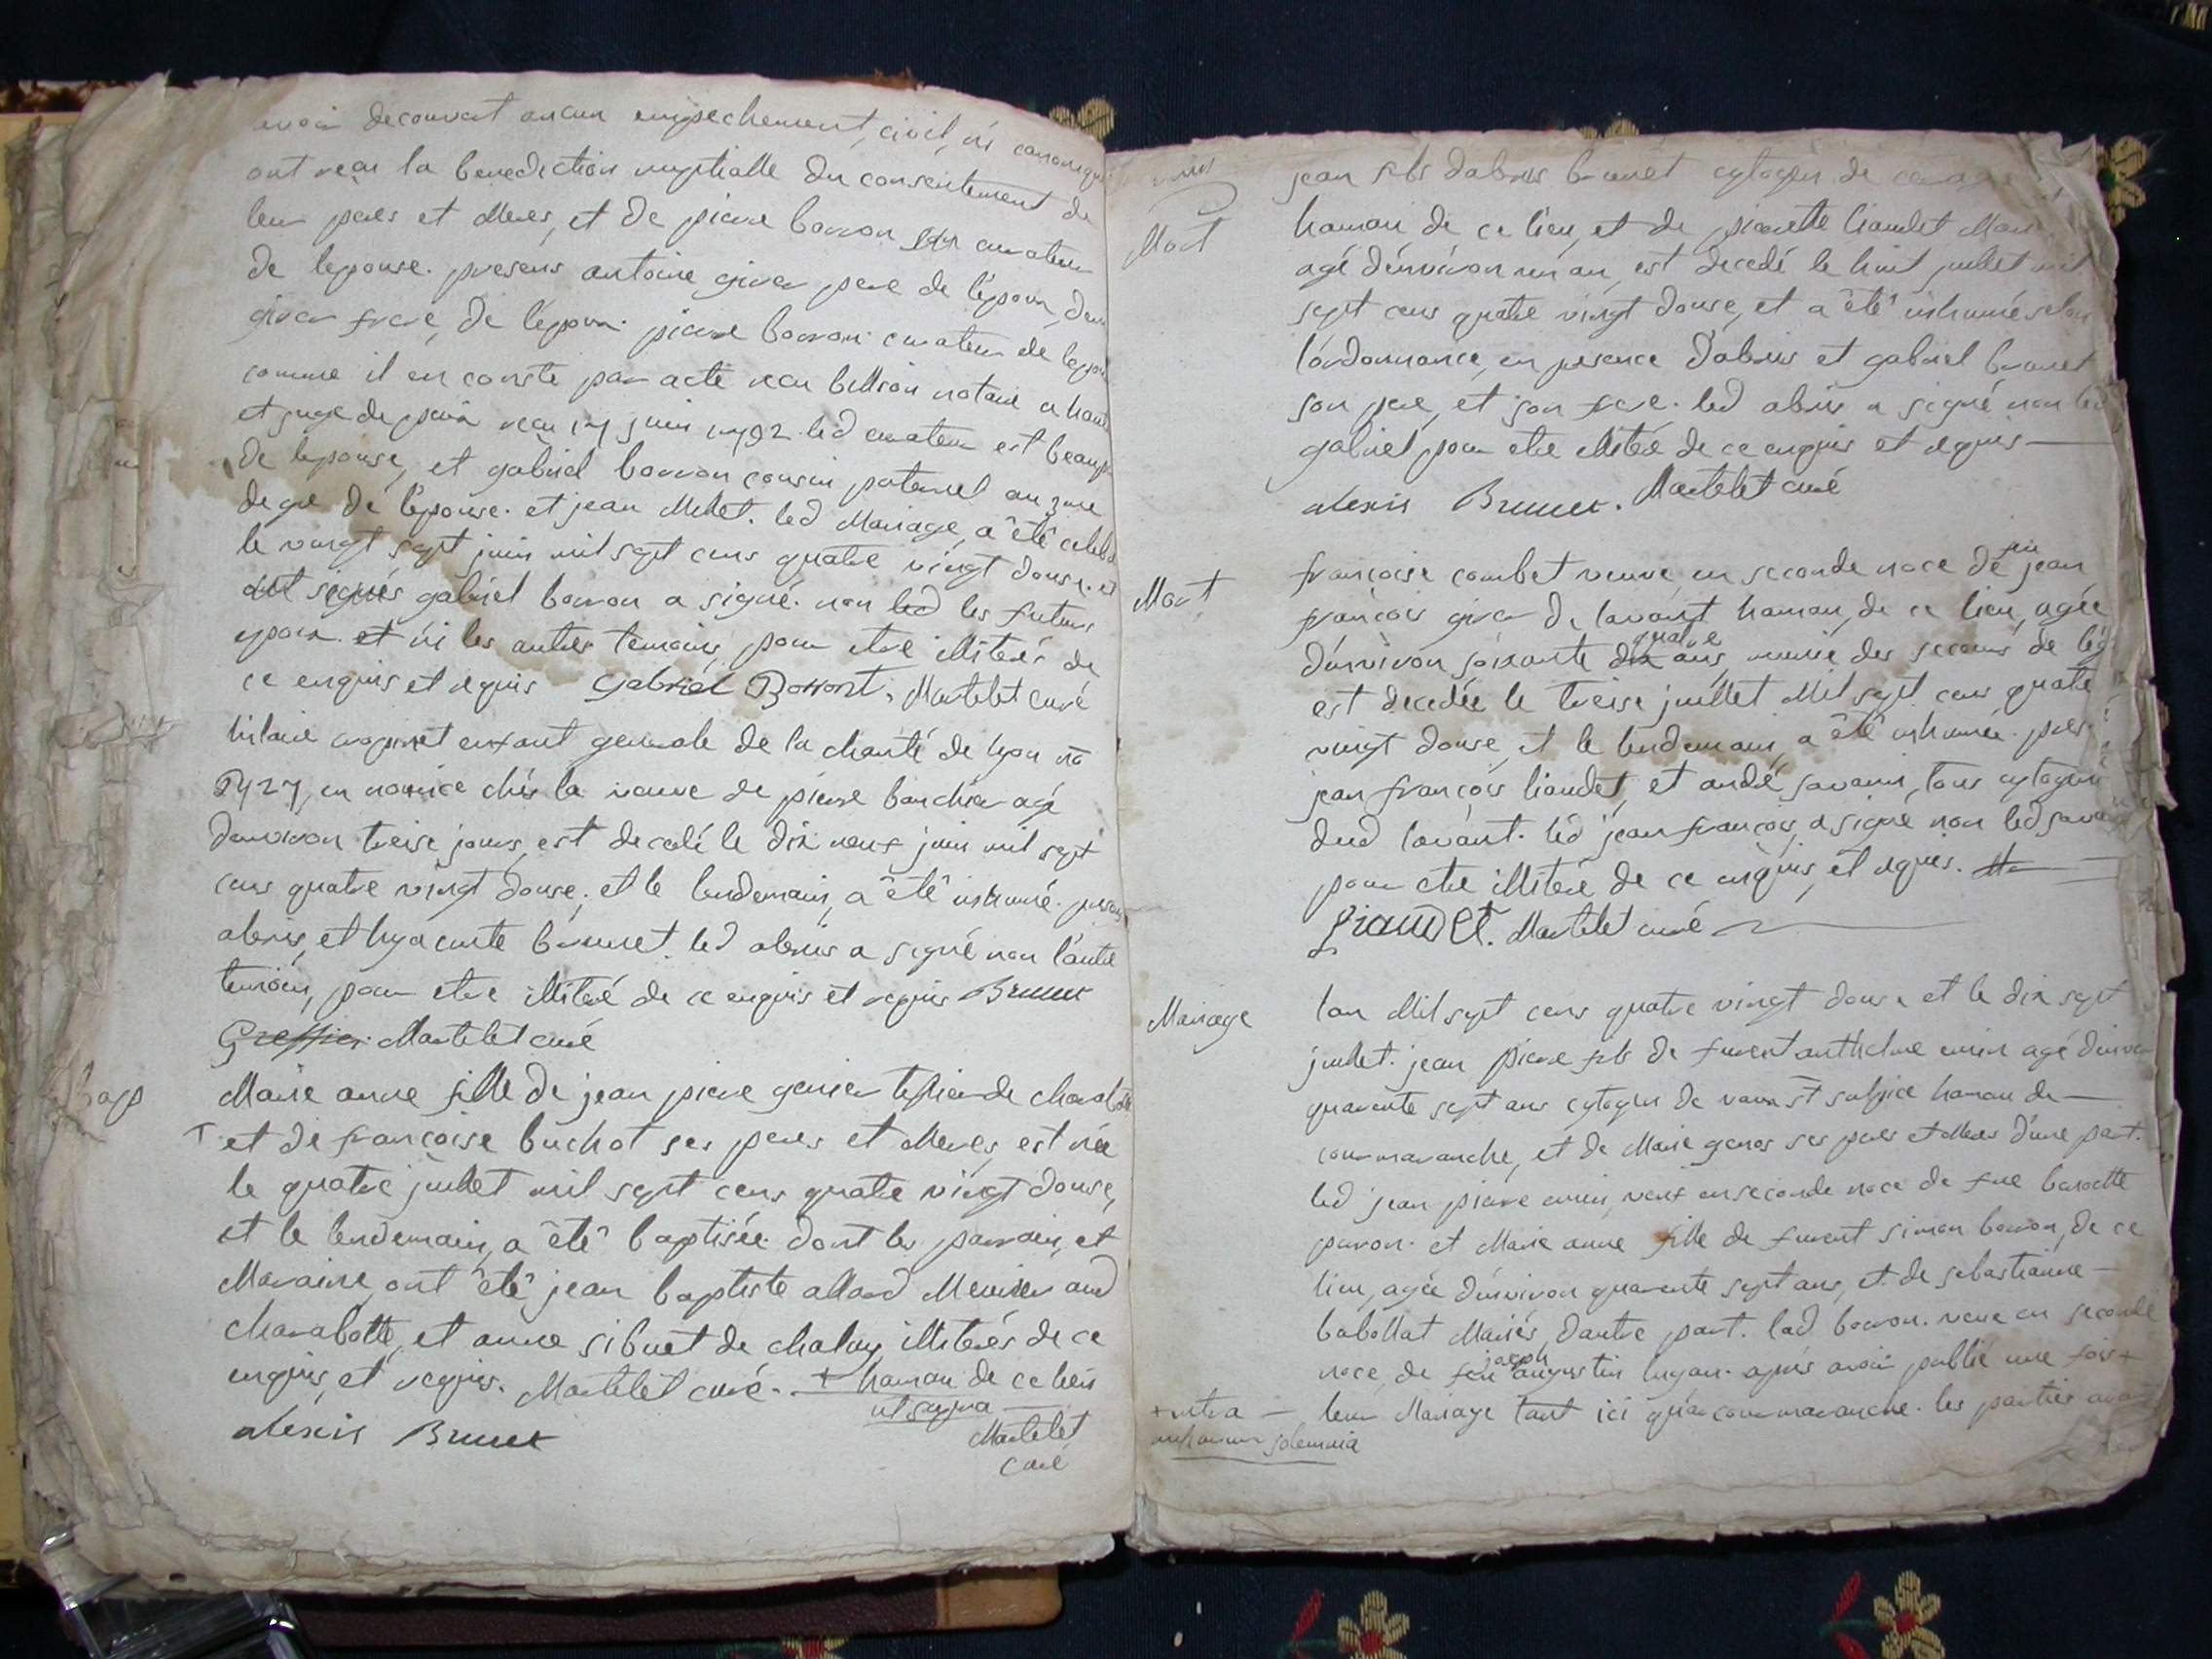 avoir decouvert aucun empechement, civil, ni canonique
ont reçu la benediction nuptialle du consentement de
leur peres et Meres, et de pierre borron curateur
de lepouse. presens antoine giver pere de l'epoux,
giver frere, de l'epoux. pierre borron curateur de lepouse
comme il en conste par acte recu billion notaire a haut
et juge de paix recu 17 juin 1792 led curateur est beaupere
de lepouse, et gabriel borron cousin paternel au 3me
degre de l'epouse. et jean Milet. led Mariage, a été celebré
le vingt sept juin mil sept cens quatre vingt douse. et
ont signés gabriel borron a signé. non led les futurs
epoux et ni les autres temoins pour etre illiterés de
ce enquis et requis Gabriel Borront. Martelet curé
hilaire enfant generale de la charité de lyon no
2427, en nourice chés la veuve de pierre barchier agé
denviron treise jours, est decedé le dix neuf juin mil sept
cens quatre vingt douse, et le lendemain, a été inhumé. presens
alexis, et hyacinte brunet. led alexis a signé non l'autre
temoin, pour etre illiteré de ce enquis et requis Brunet
Greffier Martelet curé
bap
Marie anne fille de jean pierre genier de charabotte
+ et de francoise buchot ses peres et Meres, est née
le quatre juillet mil sept cens quatre vingt douse,
et le lendemain, a été baptisée. dont les parrain, et
Maraine, ont été jean baptiste allard Meunier aud
charabotte, et anne sibuet de chaley illiterés de ce
enquis, et requis. Martelet curé. + hamau de ce lieu
ut supra
alexis Brunet
Martelet
curé
jean fils dalexis brunet cytoyen de
Mort
hamau de ce lieu, et de pierrette liaudet
agé denviron un an, est decedé le huit juillet mil
sept cens quatre vingt douse, et a été inhumé selon
l'ordonnance, en presence d'alexis et gabriel brunet
son pere, et son frere. led alexis a signé non led
gabriel pour etre illiteré de ce enquis et requis
alexis Brunet. Martelet curé
Mort
francoise combet veuve en seconde noce de feu jean
françois giver de lavant hamau, de ce lieu, agée
d'environ soixante dix quatre ans, munie des secours de
est decedée le treise juillet Mil sept cens quatre
vingt douse, et le lendemain, a été inhumée.
jean françois liaudet, et andré savarin, tous cytoyens
dud lavant. led jean françois, a signé non led
pour etre illiteré de ce enquis, et requis.
Liaudet. Martelet curé
Mariage
lan Mil sept cens quatre vingt douse et le dix sept
juillet. jean pierre fils de fuent anthelme agé d'environ
quarante sept ans cytoyen de st sulpice hamau de
cormaranche, et de Marie ses peres et Meres d'une part.
led jean pierre veuf en seconde noce de fue
et Marie anne fille de fuent simon borron, de ce
lieu, agée d'environ quarante sept ans, et de sebastianne
babollat Mariés, d'autre part. lad borron. veuve en seconde
noce, de feu joseph augustin lugan. aprés avoir publié une fois +
leur Mariage tant ici qu'a cormaranche. les parties
+ intra
solemnia